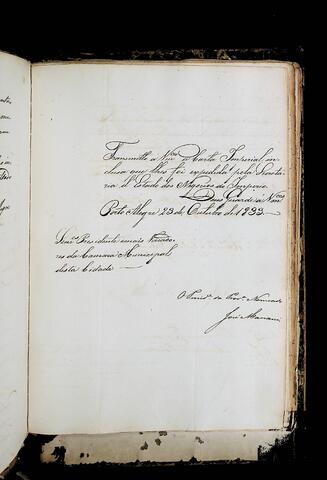 Transmitto a Vmces a Carta Imperial in
clusa que lhes foi expedida pela Secreta
ria d'Estado dos Negocios do Imperio
Deos Guarde a Vmces
Porto Alegre 23 de Outubro de 1833
Senrs Presidente e mais Vereado
res da Camara Municipal
desta Cidade
O Presid da Prov
José Mariani